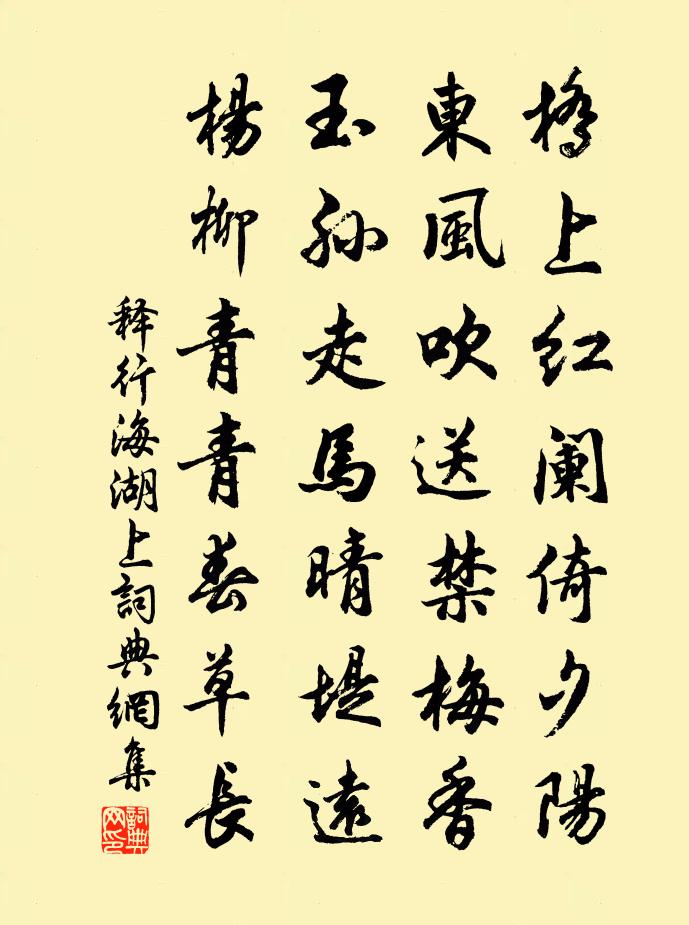 橋上红闌倚夕陽
東風吹送禁梅香
玉孙走馬晴堤遠
楊柳青青春草長
释行海湖上詞典網集
詞典网印